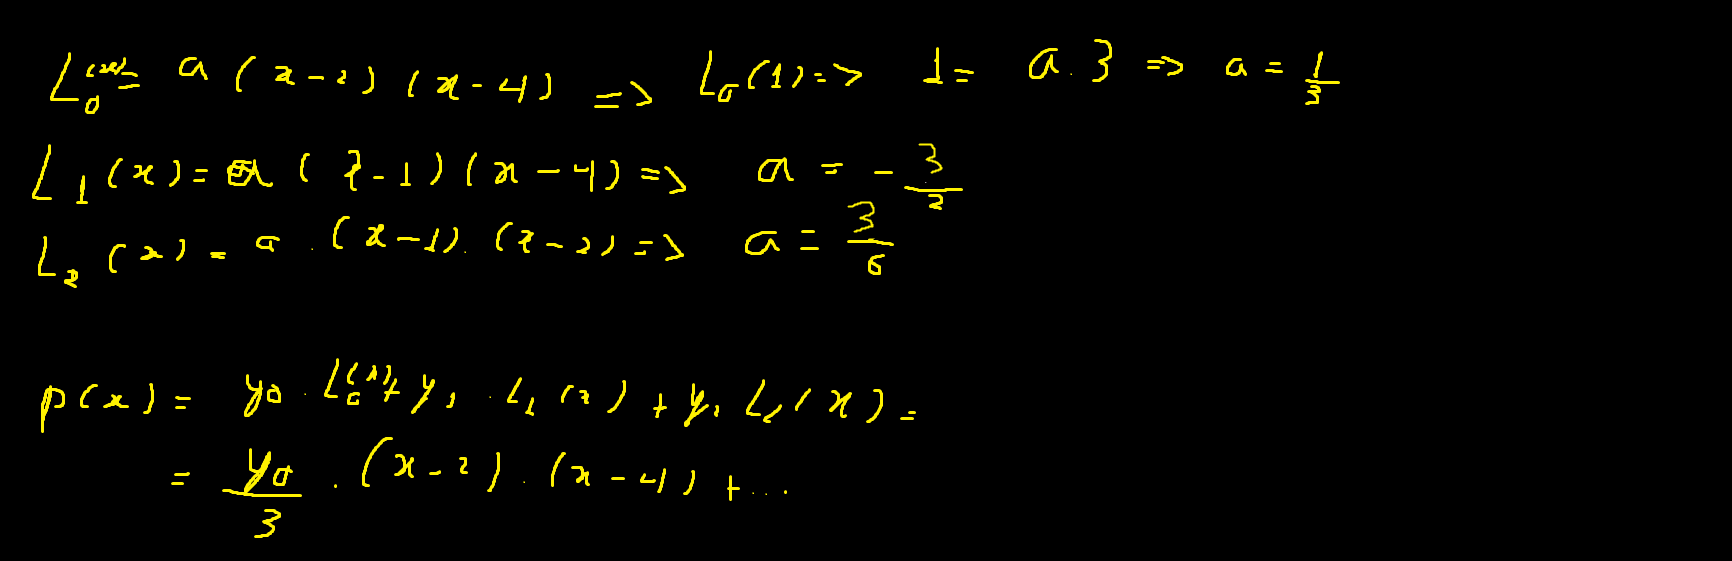 L₀(x) = a (x-2) (x-4) => L₀(1) => 1 = a.3 => a = 1/3
L₁(x) = a (x-1) (x-4) => a = - 3/2
L₂(x) = a . (x-1). (x-2) => a = 3/6
p(x) = y₀ . L₀(x) + y₁ . L₁(x) + y₂ L₂(x) =
= y₀/3 . (x-2) . (x-4) + ...